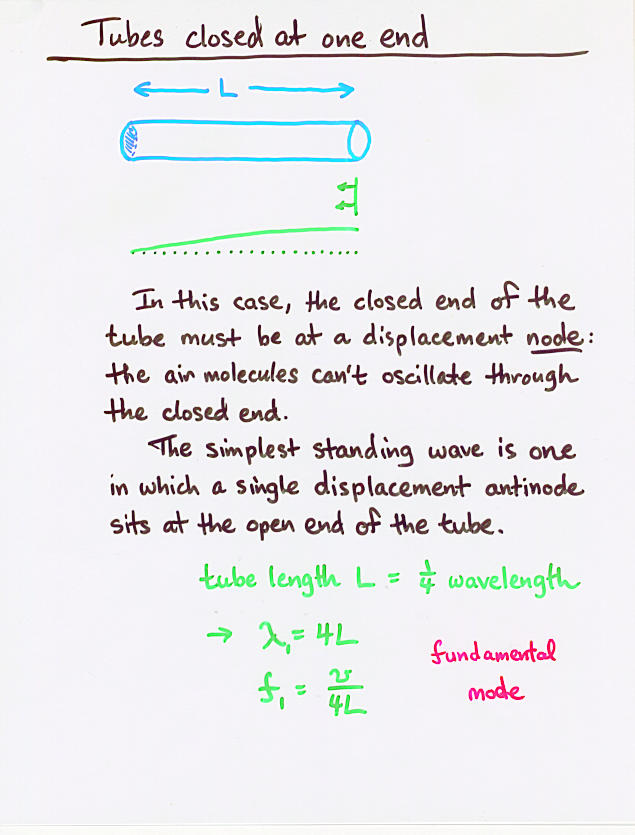 Tubes closed at one end
L
In this case, the closed end of the
tube must be at a displacement node:
the air molecules can't oscillate through
the closed end.
The simplest standing wave is one
in which a single displacement antinode
sits at the open end of the tube.
tube length L = 1/4 wavelength
→ λ₁ = 4L
f₁ = v/4L
fundamental
mode